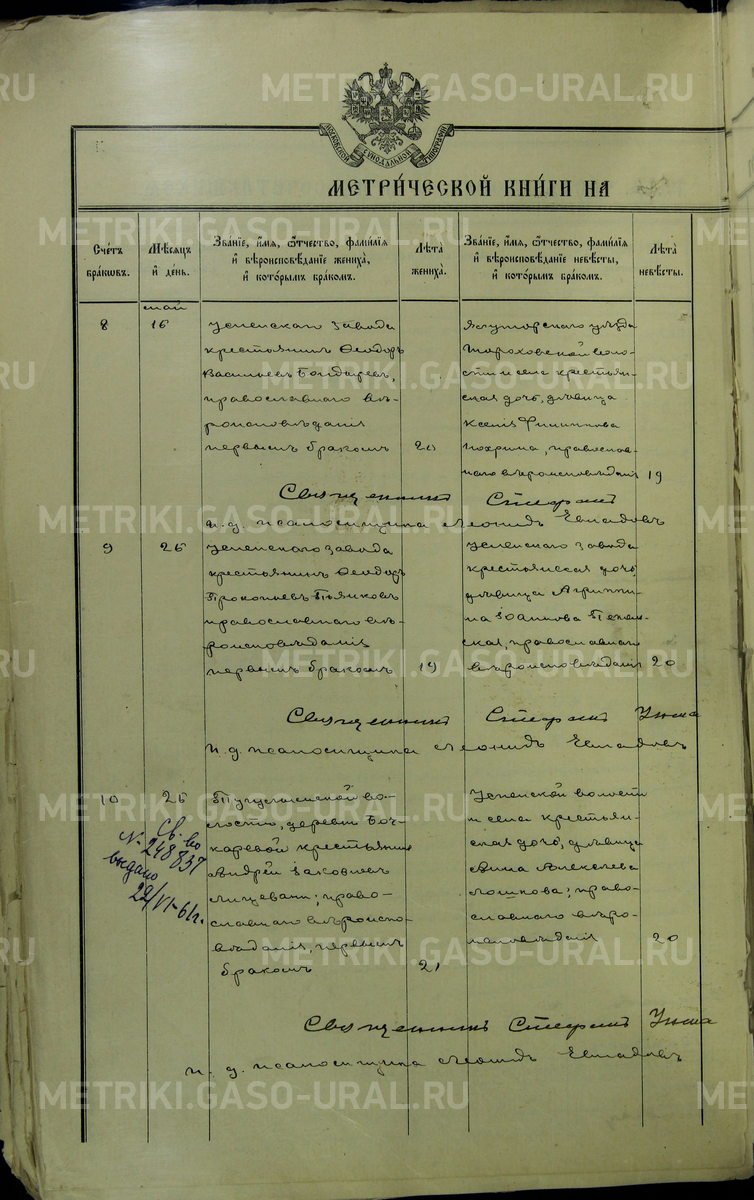 METRIKI.GASO-URAL.RU
МОСКОВСКОЙ СУНОДАЛЬНОЙ ТИПОГРАФІИ
МЕТРИ́ЧЕСКОЙ КНИ́ГИ НА
Сче́тъ бра́кѡвъ.
Мѣ́сяцъ и҆ де́нь.
Зва́нїе, и҆́мѧ, ѻ҆́тчество, фамѝлїѧ
и҆ вѣроисповѣ́данїе жениха̀,
и҆ кото́рымъ бра́комъ.
Лѣта̀ жениха̀.
Зва́нїе, и҆́мѧ, ѻ҆́тчество, фамѝлїѧ
и҆ вѣроисповѣ́данїе невѣ́сты,
и҆ кото́рымъ бра́комъ.
Лѣта̀ невѣ́сты.
май
8
16
Успенскаго завода
крестьянинъ Ѳеодоръ
Васильевъ Бондаревъ,
православнаго вѣ-
роисповѣданія
первымъ бракомъ
20
Ялуторскаго уѣзда
волос-
ти и села крестьян-
ская дочь, дѣвица
Ксенія Филиппова
православ-
наго вѣроисповѣданія
19
Священникъ Стефанъ
и. д. псаломщика Леонидъ
9
26
Успенскаго завода
крестьянинъ Ѳеодоръ
Прокопьевъ Пьянковъ
православнаго вѣ-
роисповѣданія
первымъ бракомъ
19
Успенскаго завода
крестьянская дочь,
дѣвица Агриппи-
на Іоаннова
православнаго
вѣроисповѣданія
20
Священникъ Стефанъ
и. д. псаломщика Леонидъ
10
26
Св-во
№ 248837
выдано
22/VI-61г.
во-
лости, деревни Боч-
каревой крестьянинъ
Андрей Іаковлевъ
право-
славнаго вѣроиспо-
вѣданія, первымъ
бракомъ
21
Успенской волости
и села крестьян-
ская дочь, дѣвица
Анна Алексѣева
право-
славнаго вѣро-
исповѣданія
20
Священникъ Стефанъ
и. д. псаломщика Леонидъ